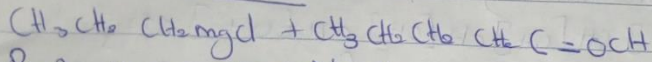 CH3CH2 CH2mgcl + CH3 CH2 CH2 CH2 C = OCH